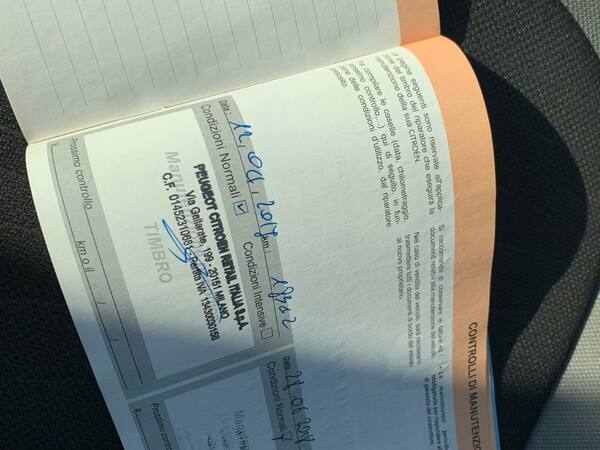 CONTROLLI DI MANUTENZIO
Le pagine seguenti sono riservate all'applica-
zione del timbro del riparatore che eseguirà la
manutenzione della sua CITROËN.
Far compilare le caselle (data, chilometraggio,
prossimo controllo...) qui di seguito, in fun-
zione delle condizioni d'utilizzo, dal riparatore
prescelto.
Si raccomanda di conservare le fatture ed i
documenti relativi alla manutenzione del veicolo.
Nel caso di vendita del veicolo, sarà necessario
trasmettere tutti i documenti di bordo del veicolo
al nuovo proprietario.
obbligatorie per rispondere
di garanzia del costruttore
Data: 2017 km:
Condizioni Normali Condizioni Intensive
TIMBRO
PEUGEOT CITROEN RETAIL ITALIA S.p.A.
Via Gallarate, 199 - 20151 MILANO
Partita IVA 13430030158
Prossimo controllo
km o il / /
Data:
Condizioni Normali
Prossimo contro